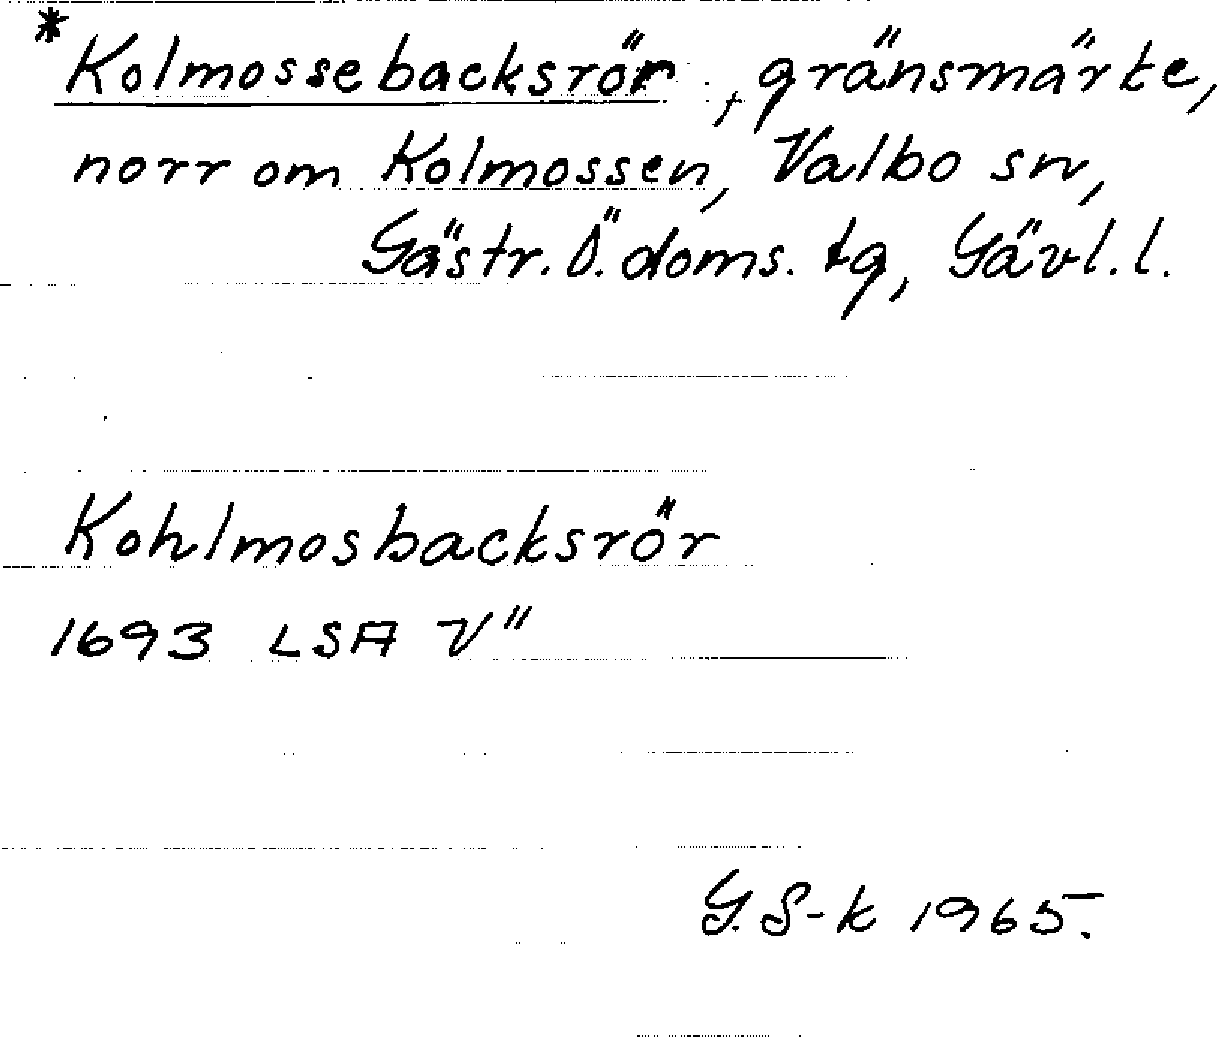 *Kolmossebacksrör, gränsmärke,
norr om Kolmossen, Valbo sn,
Gästr. Ö. doms. tg, Gävl. l.
Kohlmosbacksrör
1693 LSA V"
G. S-k 1965.